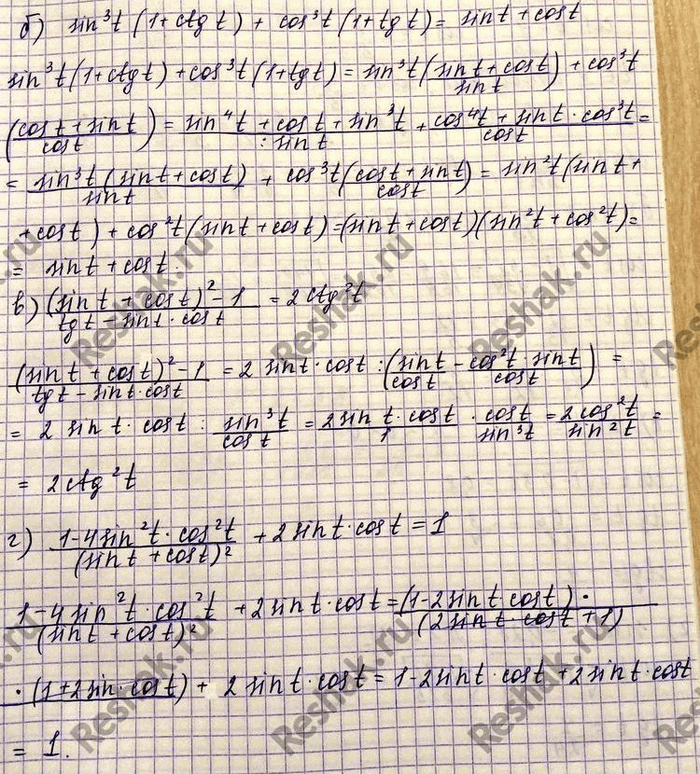 б) sin³t (1+ctg t) + cos³t (1+tg t) = sin t + cos t
sin³t (1+ctg t) + cos³t (1+tg t) = sin³t ((sin t + cos t)/sin t) + cos³t
((cos t + sin t)/cos t) = (sin⁴t + cos t + sin³t)/(: sin t) + (cos⁴t + sin t · cos³t)/cos t =
= (sin³t (sin t + cos t))/sin t + cos³t ((cos t + sin t)/cos t) = sin²t (sin t +
+ cos t) + cos²t (sin t + cos t) = (sin t + cos t)(sin²t + cos²t) =
= sin t + cos t.
в) ((sin t + cos t)² - 1)/(tg t - sin t · cos t) = 2 ctg²t
((sin t + cos t)² - 1)/(tg t - sin t · cos t) = 2 sin t · cos t : (sin t/cos t - (cos²t · sin t)/cos t) =
= 2 sin t · cos t : sin³t/cos t = (2 sin t · cos t)/1 · cos t/sin³t = 2cos²t/sin²t =
= 2 ctg²t
г) (1-4 sin²t · cos²t)/(sin t + cos t)² + 2 sin t · cos t = 1
(1-4 sin²t · cos²t)/(sin t + cos t)² + 2 sin t · cos t = (1-2 sin t cos t) · /(2 sin t · cos t + 1)
· (1+2 sin · cos t) + 2 sin t · cos t = 1-2 sin t · cos t + 2 sin t · cos t
= 1.
Reshak.ru
Reshak.ru
Reshak.ru
Reshak.ru
Reshak.ru
Reshak.ru